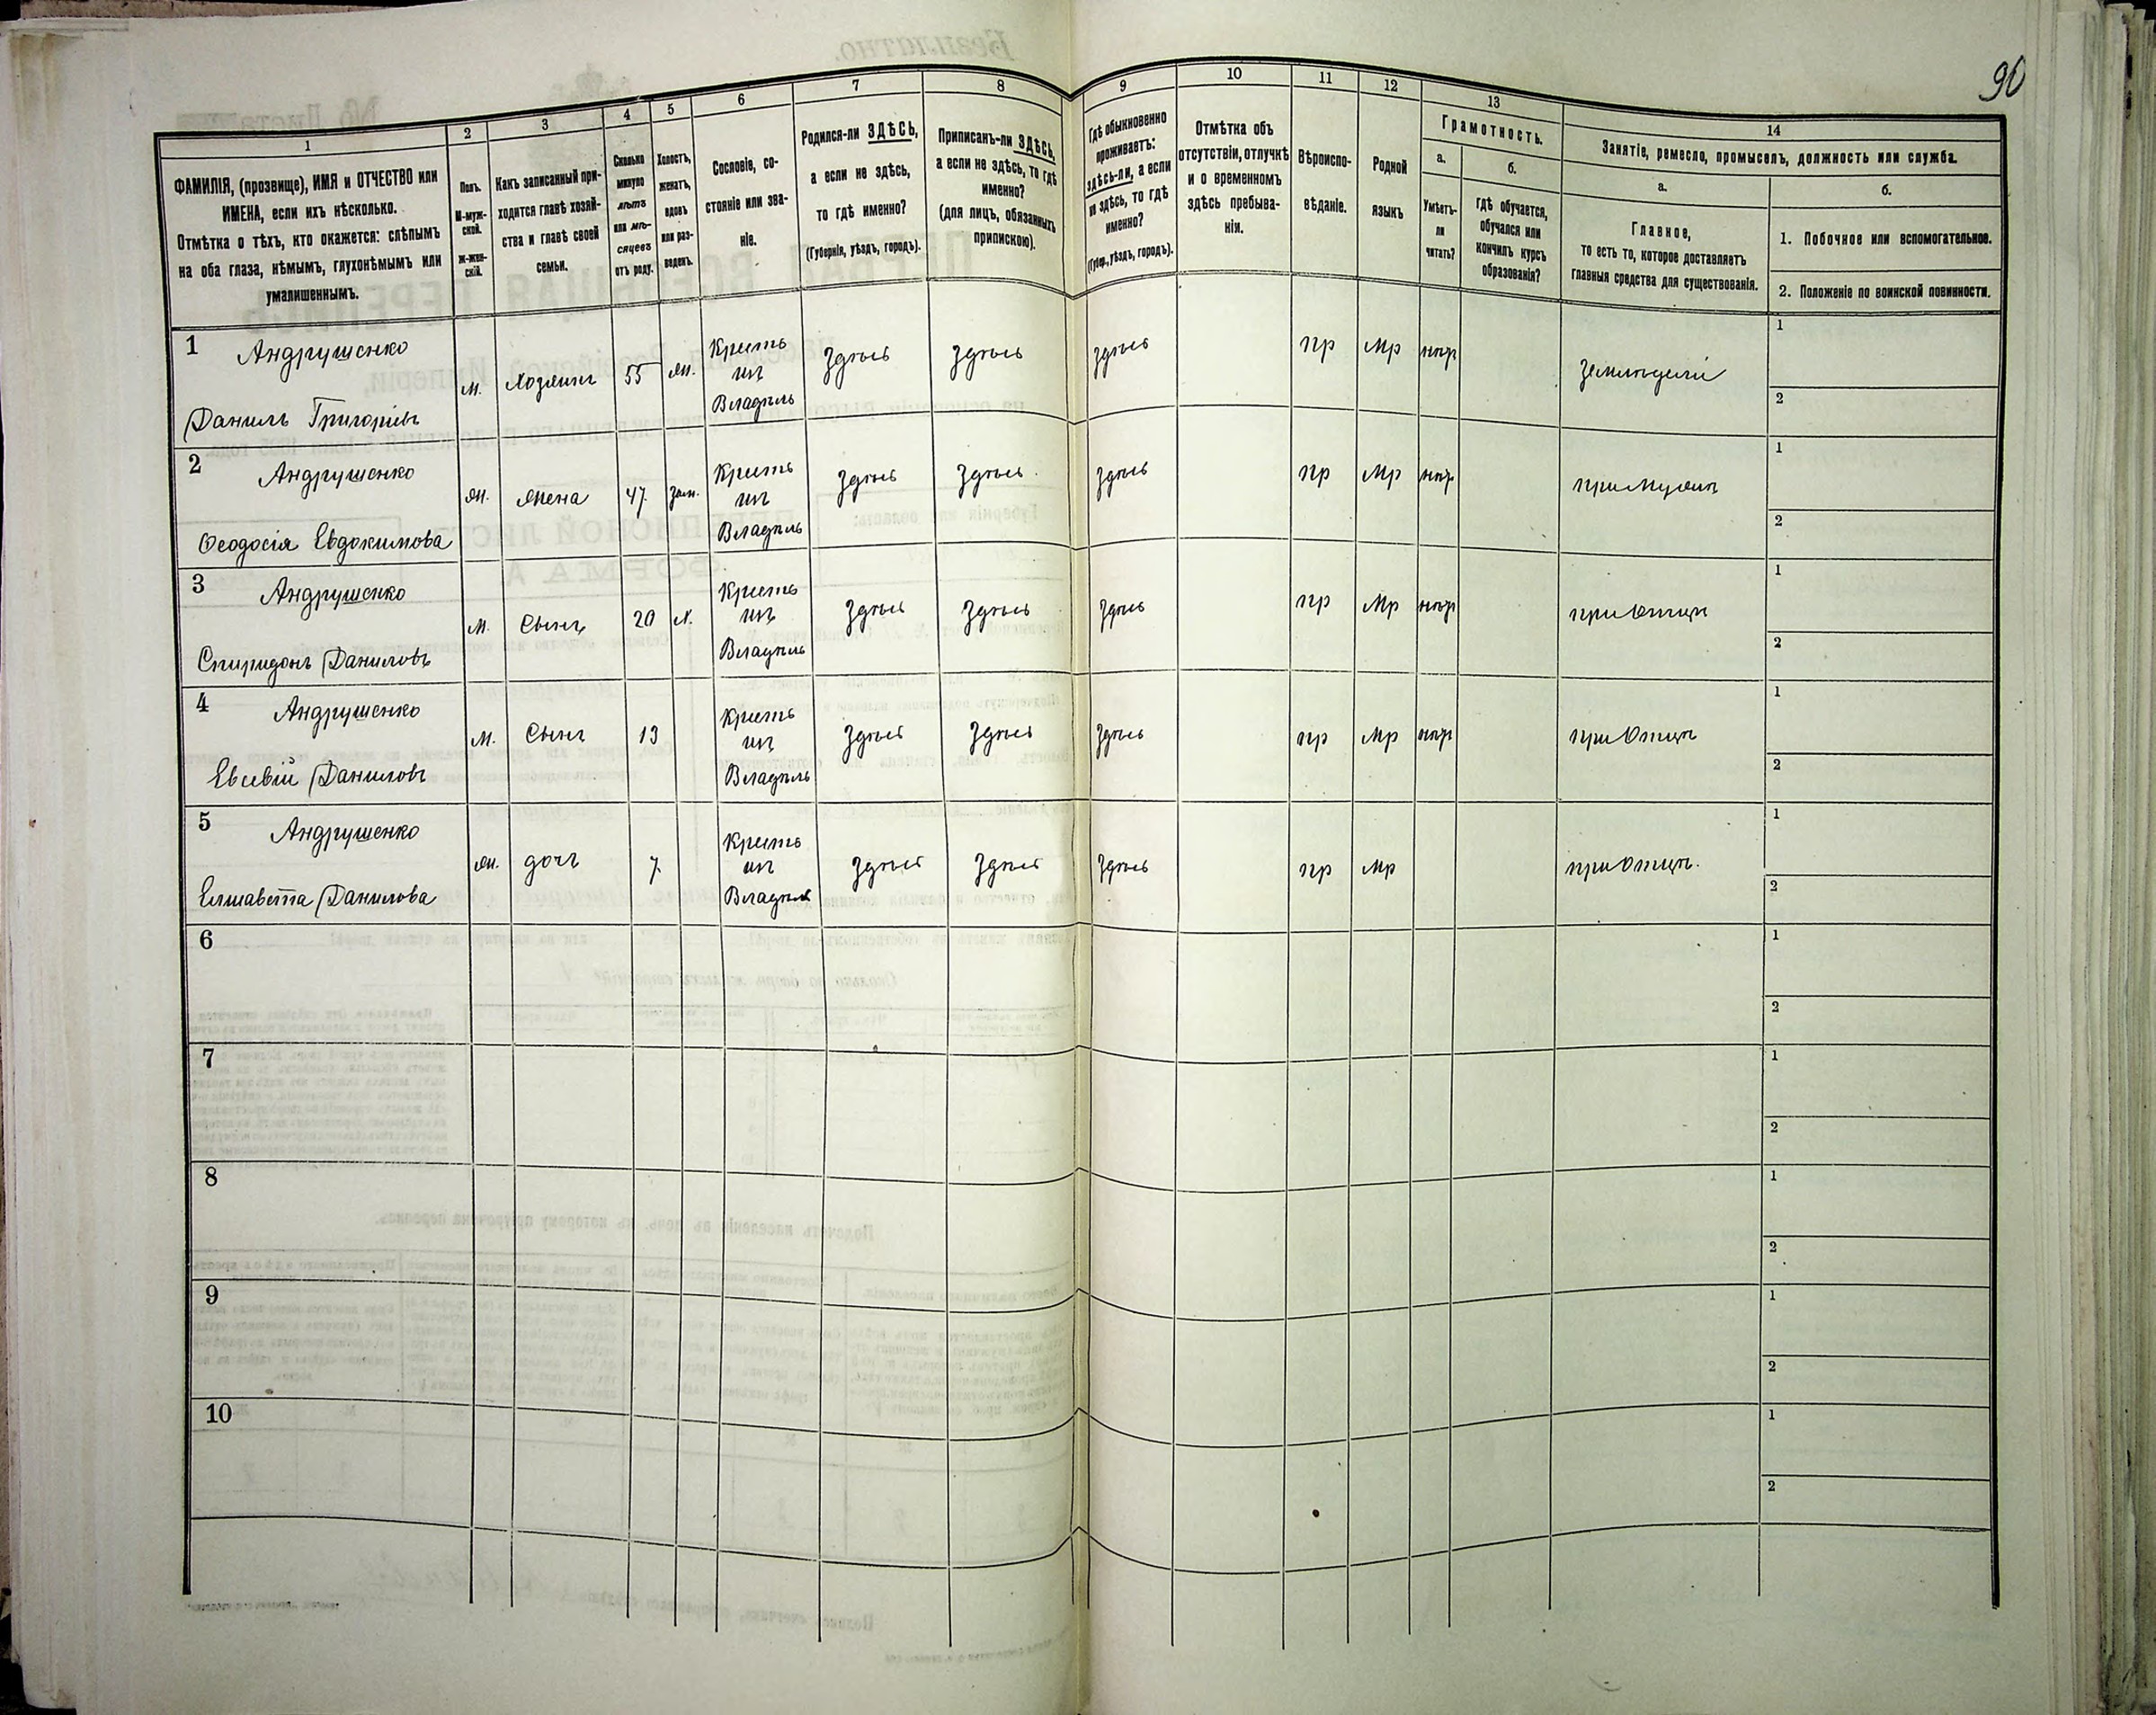 90
1
ФАМИЛІЯ, (прозвище), ИМЯ и ОТЧЕСТВО или
ИМЕНА, если ихъ нѣсколько.
Отмѣтка о тѣхъ, кто окажется: слѣпымъ
на оба глаза, нѣмымъ, глухонѣмымъ или
умалишеннымъ.
2
Полъ.
М-муж-
ской.
Ж-жен-
скій.
3
Какъ записанный при-
ходится главѣ хозяй-
ства и главѣ своей
семьи.
4
Сколько
минуло
лѣтъ
или мѣ-
сяцевъ
отъ роду.
5
Холостъ,
женатъ,
вдовъ
или раз-
веденъ.
6
Сословіе, со-
стояніе или зва-
ніе.
7
Родился-ли ЗДѢСЬ,
а если не здѣсь,
то гдѣ именно?
(Губернія, уѣздъ, городъ).
8
Приписанъ-ли ЗДѢСЬ,
а если не здѣсь, то гдѣ
именно?
(для лицъ, обязанныхъ
припискою).
9
Гдѣ обыкновенно
проживаетъ:
здѣсь-ли, а если
не здѣсь, то гдѣ
именно?
(Губер., уѣздъ, городъ).
10
Отмѣтка объ
отсутствіи, отлучкѣ
и о временномъ
здѣсь пребыва-
ніи.
11
Вѣроиспо-
вѣданіе.
12
Родной
языкъ
13
Грамотность.
а.
Умѣетъ-
ли
читать?
б.
гдѣ обучается,
обучался или
кончилъ курсъ
образованія?
14
Занятіе, ремесло, промыселъ, должность или служба.
а.
Главное,
то есть то, которое доставляетъ
главныя средства для существованія.
б.
1. Побочное или вспомогательное.
2. Положеніе по воинской повинности.
1 Андрушенко
Данилъ Григорiевъ
м. Хозяинъ 55 ж.
Крѣсть
изъ
Владѣль
Здѣсь Здѣсь Здѣсь пр Мр нѣт
Земледелiе
1
2
2 Андрушенко
Ѳеодосія Евдокимова
ж. Жена 47 зам.
Крѣсть
изъ
Владѣль
Здѣсь Здѣсь Здѣсь пр Мр нѣт
при Мужѣ
1
2
3 Андрушенко
Спиридонъ Даниловъ
м. Сынъ 20 х.
Крѣсть
изъ
Владѣль
Здѣсь Здѣсь Здѣсь пр Мр нѣт
при Отцѣ
1
2
4 Андрушенко
Евсевій Даниловъ
м. Сынъ 13
Крѣсть
изъ
Владѣль
Здѣсь Здѣсь Здѣсь пр Мр нѣт
при Отцѣ
1
2
5 Андрушенко
Елисавета Данилова
ж. дочь 7
Крѣсть
изъ
Владѣль
Здѣсь Здѣсь Здѣсь пр Мр
при Отцѣ.
1
2
6
1
2
7
1
2
8
1
2
9
1
2
10
1
2